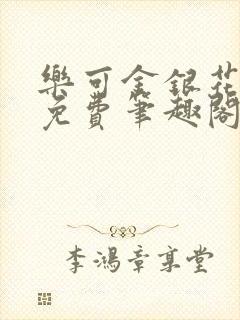 樂可金銀花
免費筆趣閣
李鴻章享堂